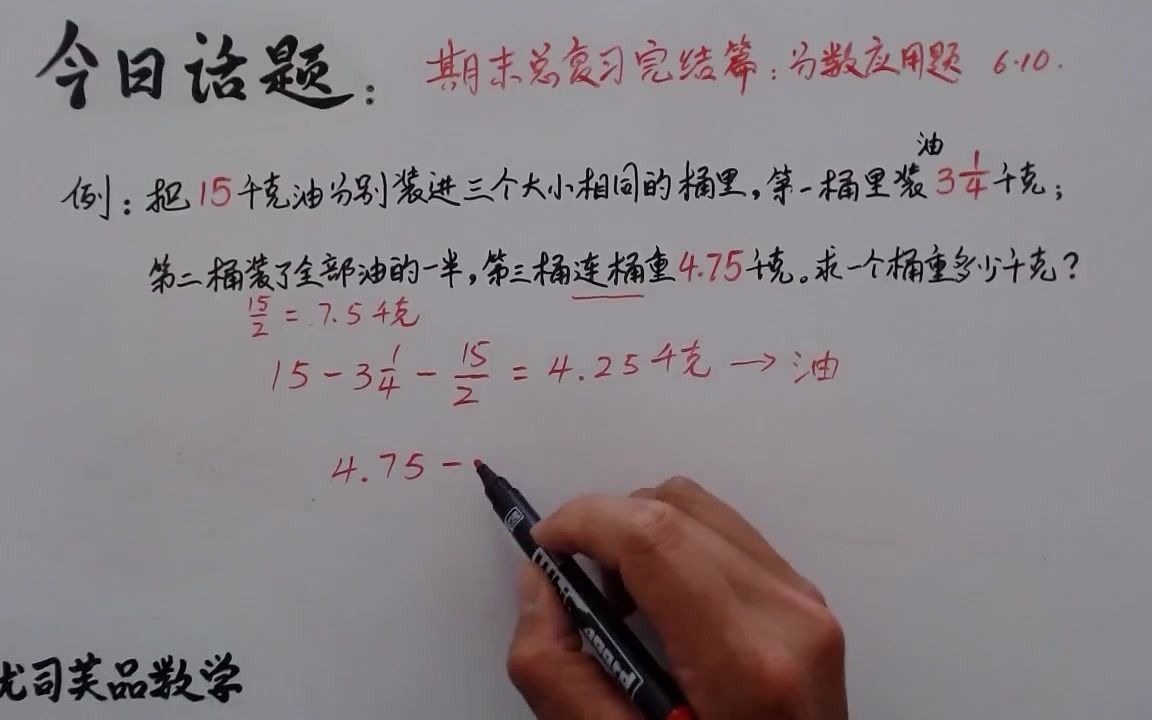 今日话题：期末总复习完结篇：分数应用题 6.10.
例：把15千克油分别装进三个大小相同的桶里，第一桶里装油3 1/4千克；
第二桶装了全部油的一半，第三桶连桶重4.75千克。求一个桶重多少千克？
15/2 = 7.5千克
15 - 3 1/4 - 15/2 = 4.25千克 → 油
4.75 -
司芙品数学